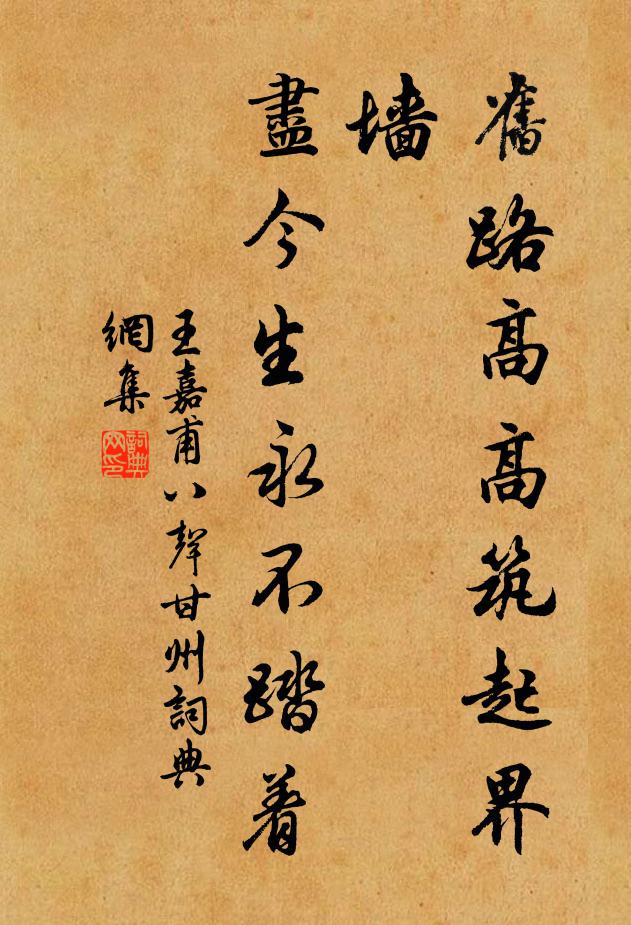 舊路高高筑起界
墙
盡今生永不踏着
王嘉甫八聲甘州詞典
網集
詞典
网印